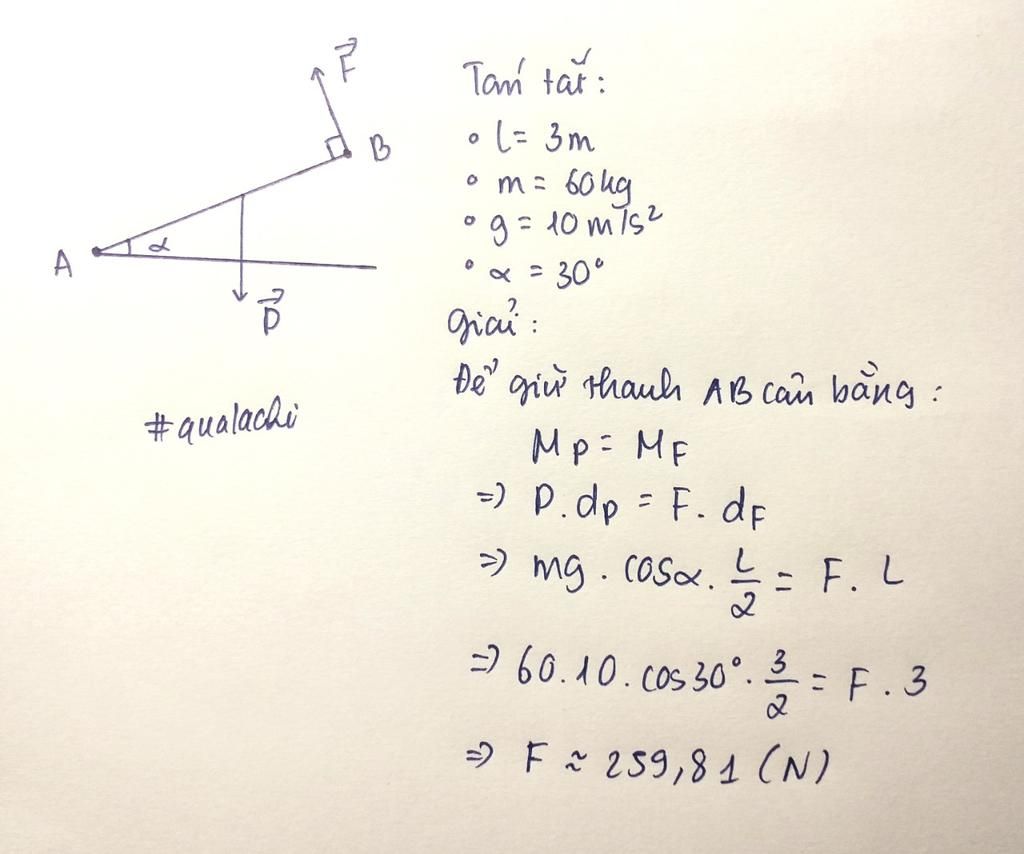 F
B
A
α
P
#qualachi
Tóm tắt:
• l = 3m
• m = 60kg
• g = 10 m/s²
• α = 30°
Giải:
Để giữ thanh AB cân bằng:
M_P = M_F
=> P.d_P = F.d_F
=> mg . cosα . L/2 = F. L
=> 60.10.cos30°. 3/2 = F . 3
=> F ≈ 259,81 (N)